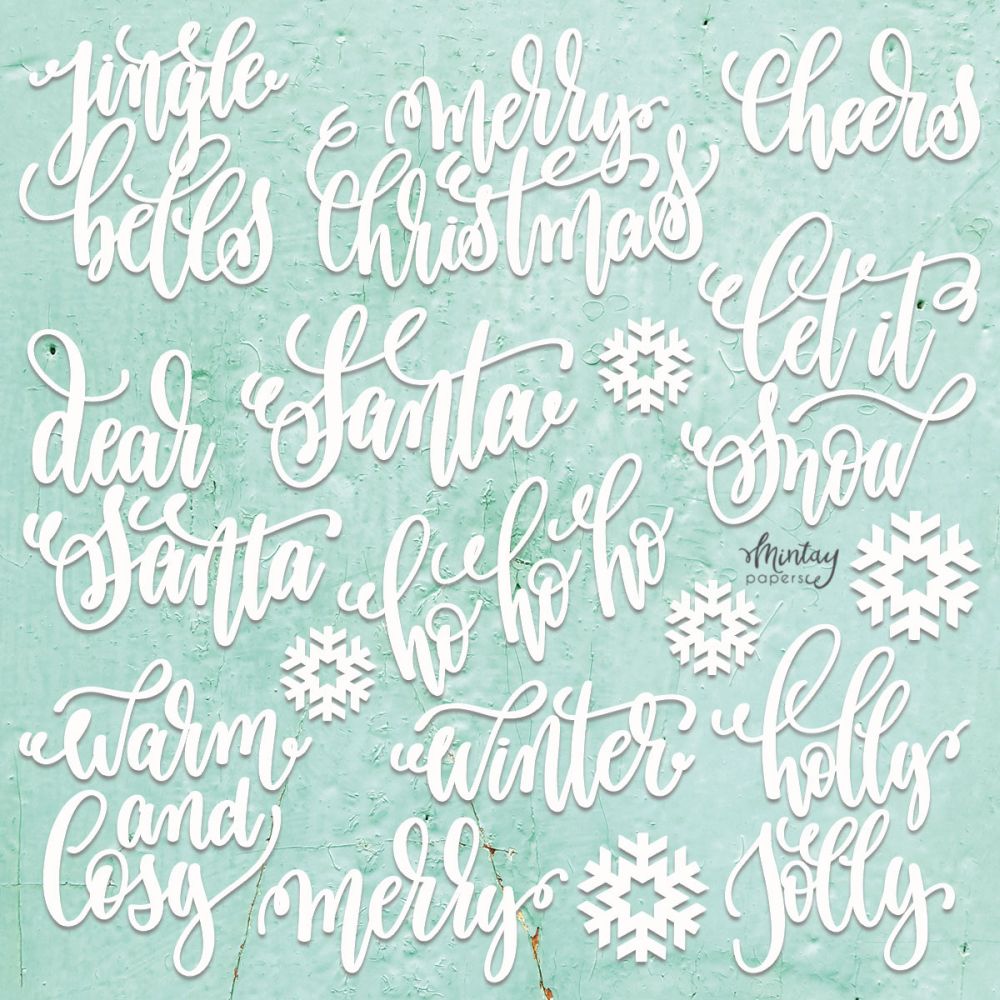 Jingle
bells
merry
Christmas
Cheers
let it
Snow
dear
Santa
Santa
ho ho ho
Mintay
papers
warm
and
Cosy
winter
merry
holly
Jolly